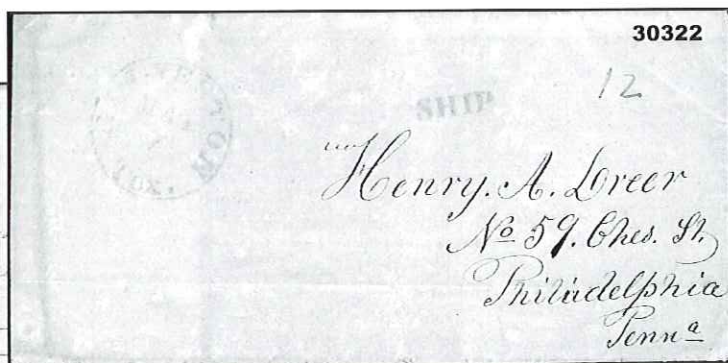 30322
12
SHIP
Henry. A. Dreer
No 59. Ches. St.
Philadelphia
Penna